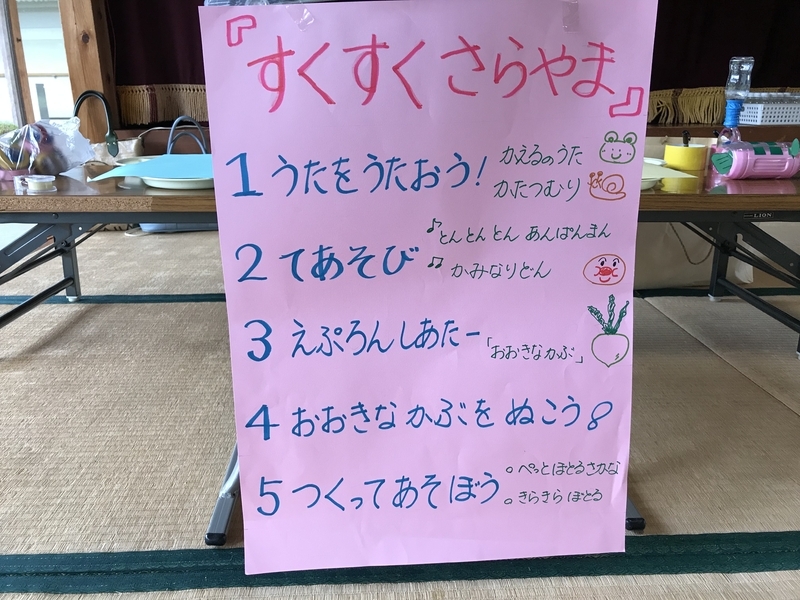 『すくすく さらやま』
1 うたをうたおう! かえるのうた
かたつむり
2 てあそび ♪とんとんとん あんぱんまん
♫ かみなりどん
3 えぷろんしあたー 「おおきなかぶ」
4 おおきな かぶを ぬこう
5 つくってあそぼう 。ぺっとぼとるさかな
。きらきらぼとる
LION